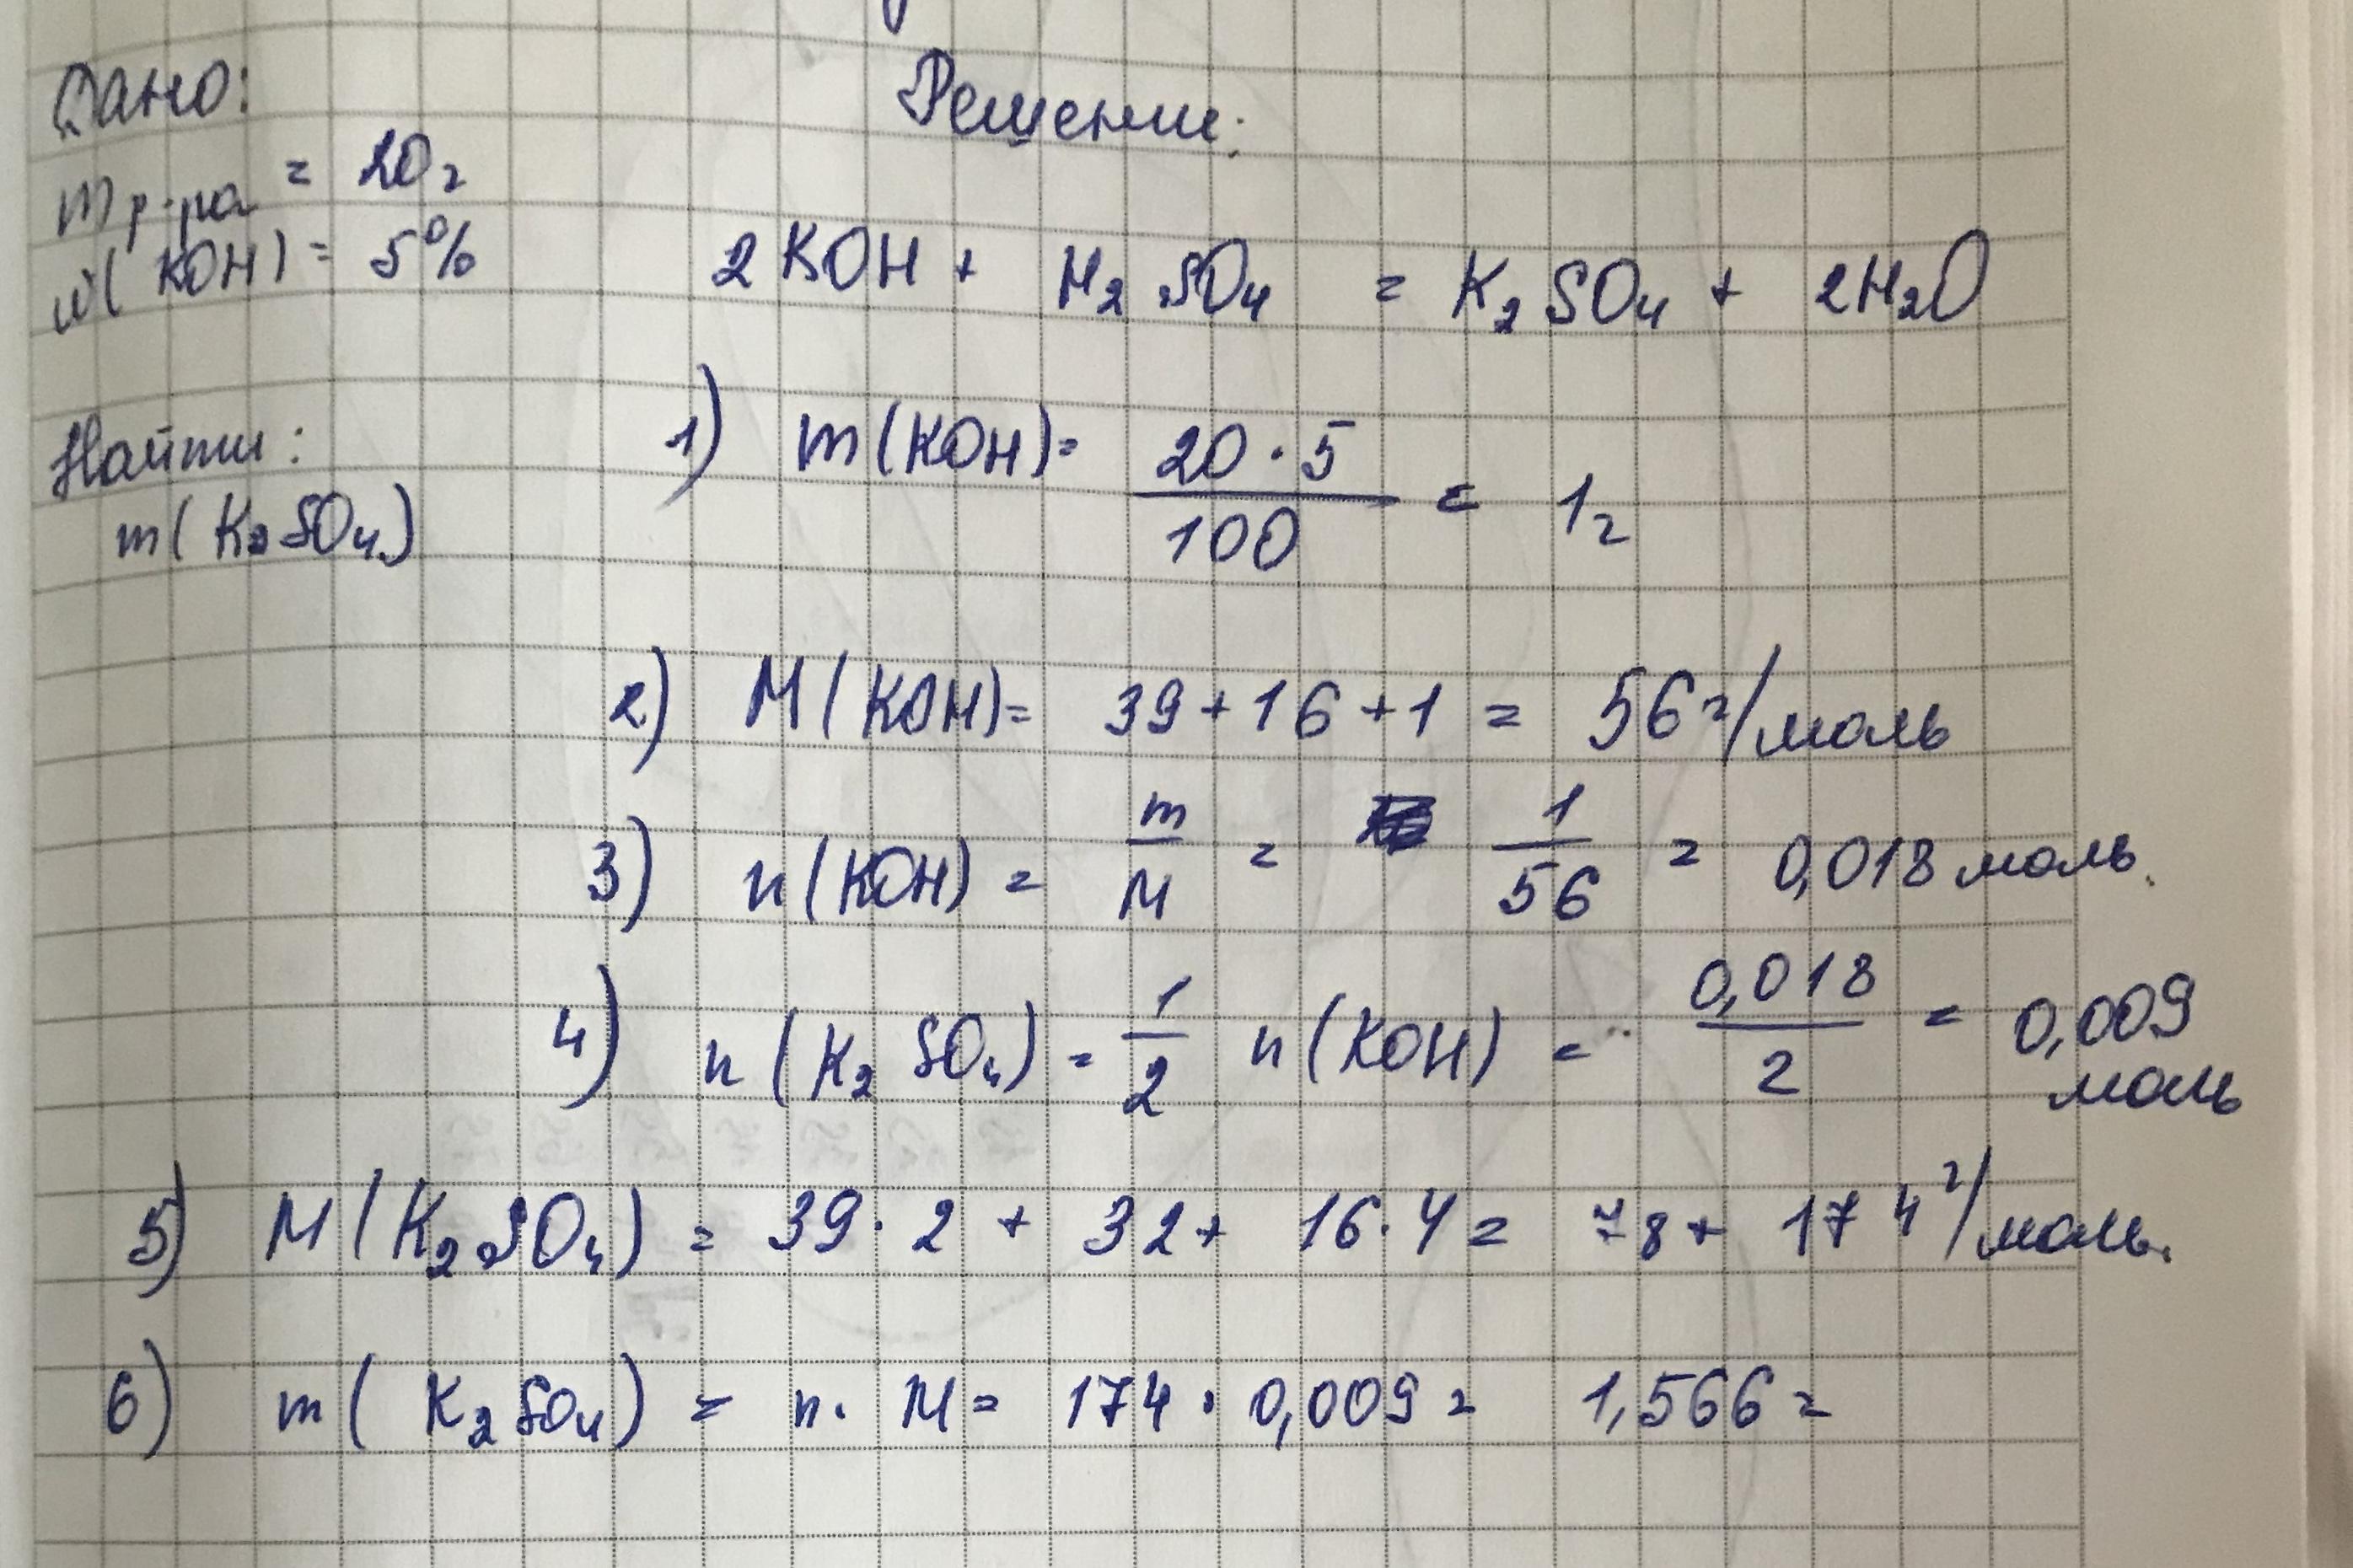 Дано:
Решение:
m р-ра = 20г
w(KOH) = 5%
2KOH + H₂SO₄ = K₂SO₄ + 2H₂O
Найти:
m(K₂SO₄)
1) m(KOH) = 20·5/100 = 1г
2) M(KOH) = 39+16+1 = 56г/моль
3) n(KOH) = m/M = 1/56 = 0,018 моль.
4) n(K₂SO₄) = 1/2 n(KOH) = 0,018/2 = 0,009 моль
5) M(K₂SO₄) = 39·2 + 32 + 16·4 = 78 + 174г/моль.
6) m(K₂SO₄) = n·M = 174·0,009 = 1,566г